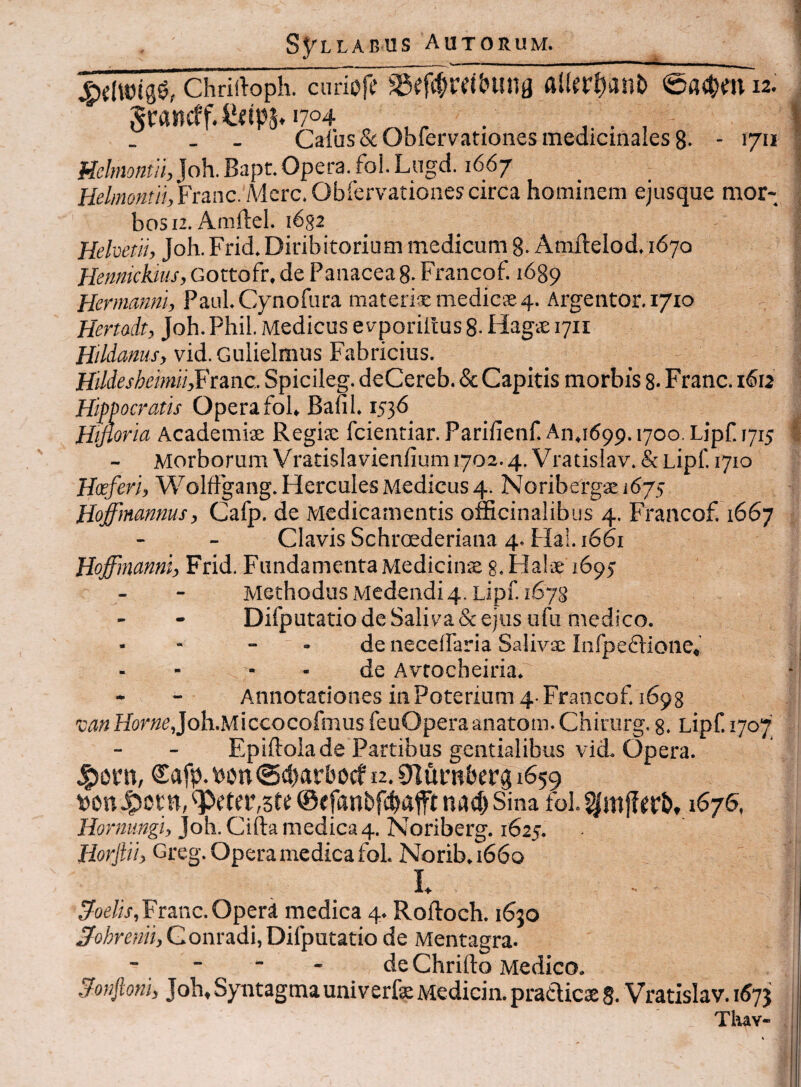 SYLLABUS AUTORUM.
Hellwigs, Christoph. curiose Beschreibung allerhand Sachen 12.
Franckf. Leipz. 1704
- - - Casus & Observationes medicinales 8. - 1711
Helmontii, Joh. Bapt. Opera. fol. Lugd. 1667
Helmontii, Franc. Merc. Observationes circa hominem ejusque mor-
bos 12. Amstel. 1682
Helvetii, Joh. Frid. Diribitorium medicum 8. Amstelod. 1670
Hennickius, Gottofr. de Panacea 8. Francof. 1689
Hermanni, Paul. Cynosura materiæ medicæ 4. Argentor. 1710
Hertodt, Joh. Phil. Medicus evporistus 8. Hagæ 1711
Hildanus, vid. Gulielmus Fabricius.
Hildesheimii, Franc. Spicileg. de Cereb. & Capitis morbis 8. Franc. 1612
Hippocratis Opera fol. Basil. 1536
Historia Academiæ Regiæ scientiar. Parisiens. An. 1699. 1700. Lips. 1715
- Morborum Vratislaviensium 1702. 4. Vratislav. & Lips. 1710
Hœferi, Wolffgang. Hercules Medicus 4. Noribergæ 1675
Hoffmannus, Casp. de Medicamentis officinalibus 4. Francof. 1667
- - Clavis Schrœderiana 4. Hal. 1661
Hoffmanni, Frid. Fundamenta Medicinæ 8. Halæ 1695
- - Methodus Medendi 4. Lips. 1678
- - Disputatio de Saliva & ejus usu medico.
- - - - de necessaria Salivæ Inspectione.
- - - - de Avtocheiria.
- - Annotationes in Poterium 4. Francof. 1698
van Horne, Joh. Miccocosmus seu Opera anatom. Chirurg. 8. Lips. 1707
- - Epistola de Partibus gentialibus vid. Opera.
Horn, Casp. von Scharbock 12. Nürnberg 1659
von Horn, Peter, 3te Gesandschafft nach Sina fol. Amsterd. 1676.
Hornungi, Joh. Cista medica 4. Noriberg. 1625.
Horstii, Greg. Opera medica fol. Norib. 1660
I.
Joelis, Franc. Opera medica 4. Rostoch. 1630
Johrenii, Conradi, Disputatio de Mentagra.
- - - - de Christo Medico.
Jonstoni, Joh. Syntagma universæ Medicin. practicæ 8. Vratislav. 1673
Thav-